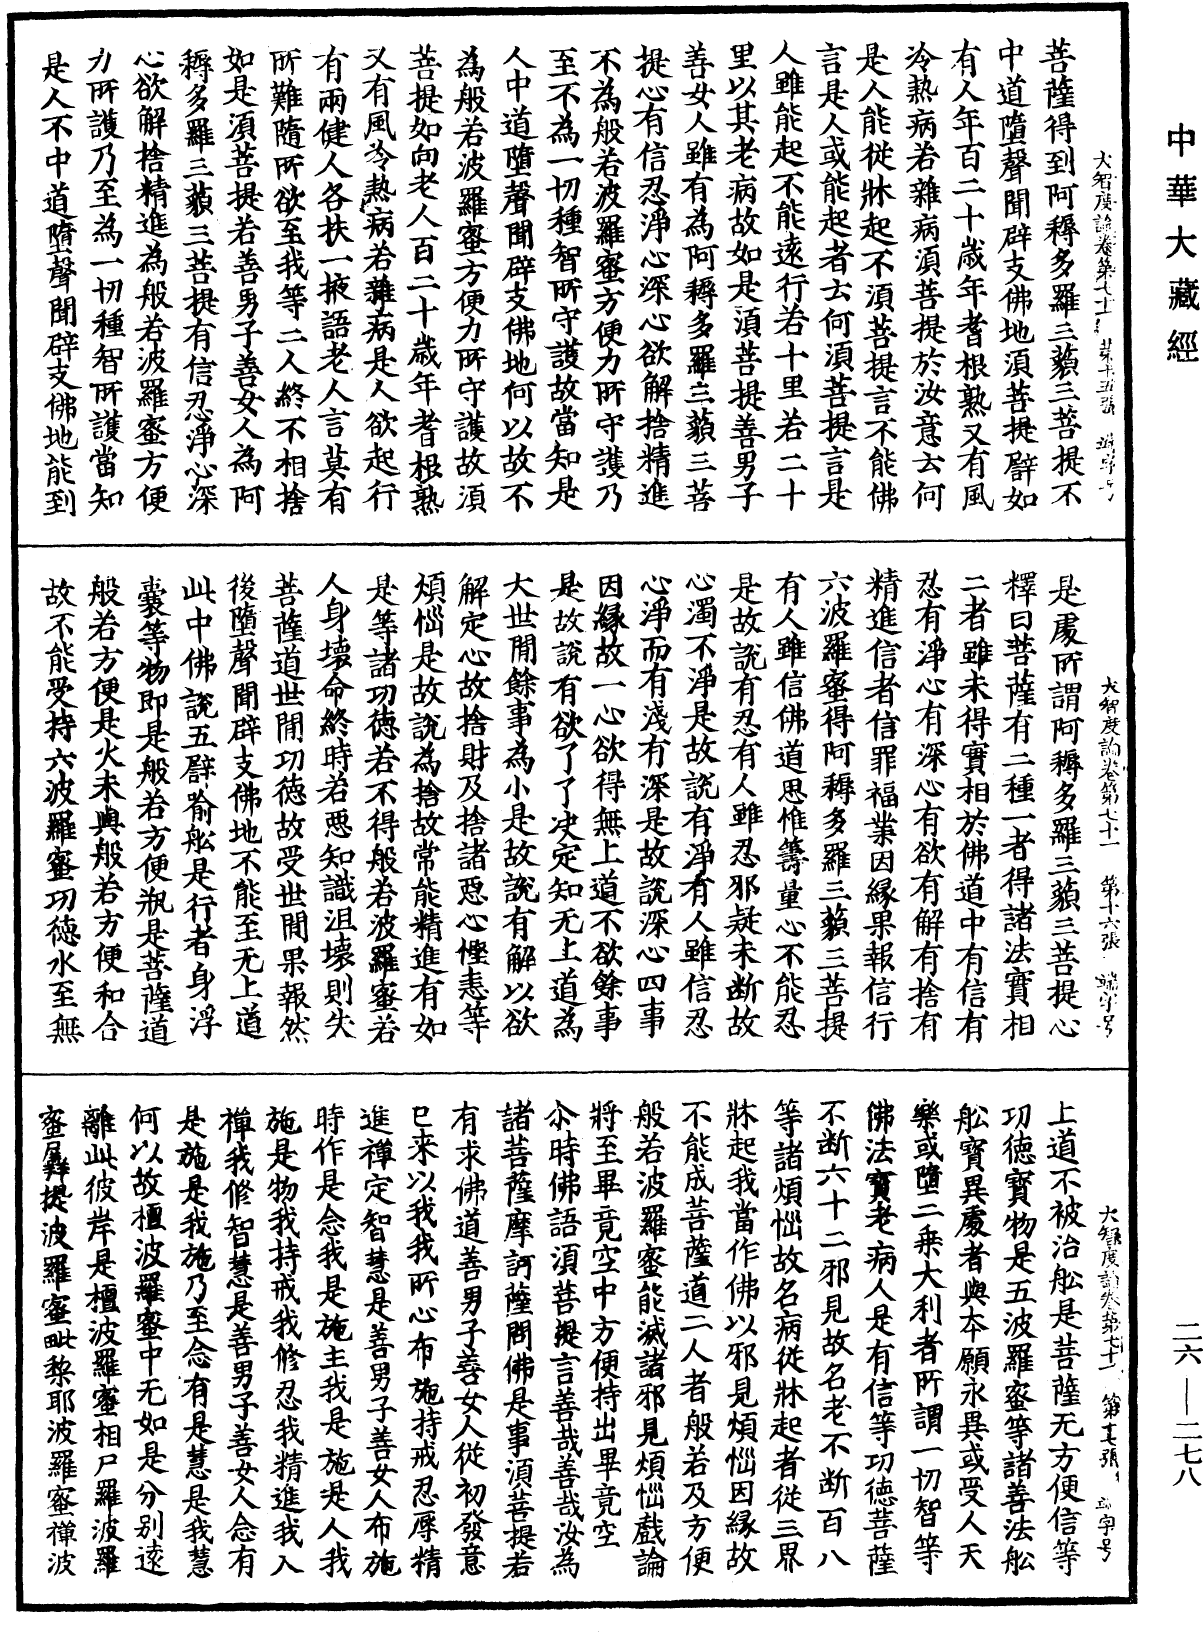 中華大藏經
二六—二七八
大智度論卷第七十一 第十五張 端字号
菩薩得到阿耨多羅三藐三菩提不
中道墮聲聞辟支佛地須菩提譬如
有人年百二十歲年耆根熟又有風
冷熱病若雜病須菩提於汝意云何
是人能從牀起不須菩提言不能佛
言是人或能起者云何須菩提言是
人雖能起不能遠行若十里若二十
里以其老病故如是須菩提善男子
善女人雖有為阿耨多羅三藐三菩
提心有信忍淨心深心欲解捨精進
不為般若波羅蜜方便力所守護乃
至不為一切種智所守護故當知是
人中道墮聲聞辟支佛地何以故不
為般若波羅蜜方便力所守護故須
菩提如向老人百二十歲年耆根熟
又有風冷熱病若雜病是人欲起行
有兩健人各扶一掖語老人言莫有
所難隨所欲至我等二人終不相捨
如是須菩提若善男子善女人為阿
耨多羅三藐三菩提有信忍淨心深
心欲解捨精進為般若波羅蜜方便
力所護乃至為一切種智所護當知
是人不中道墮聲聞辟支佛地能到
大智度論卷第七十一 第十六張 端字号
是處所謂阿耨多羅三藐三菩提心
釋曰菩薩有二種一者得諸法實相
二者雖未得實相於佛道中有信有
忍有淨心有深心有欲有解有捨有
精進信者信罪福業因緣果報信行
六波羅蜜得阿耨多羅三藐三菩提
有人雖信佛道思惟籌量心不能忍
是故說有忍有人雖忍邪疑未斷故
心濁不淨是故說有淨有人雖信忍
心淨而有淺有深是故說深心四事
因緣故一心欲得無上道不欲餘事
是故說有欲了了決定知无上道為
大世間餘事為小是故說有解以欲
解定心故捨財及捨諸惡心慳恚等
煩惱是故說為捨故常能精進有如
是等諸功德若不得般若波羅蜜若
人身壞命終時若惡知識沮壞則失
菩薩道世間功德故受世間果報然
後墮聲聞辟支佛地不能至无上道
此中佛說五譬喻舩是行者身浮
囊等物即是般若方便瓶是菩薩道
般若方便是火未與般若方便和合
故不能受持六波羅蜜功德水至無
大智度論卷第七十一 第十七張 端字号
上道不被治舩是菩薩无方便信等
功德寶物是五波羅蜜等諸善法舩
舩寶異處者與夲願永異或受人天
樂或墮二乘大利者所謂一切智等
佛法寶老病人是有信等功德菩薩
不斷六十二邪見故名老不斷百八
等諸煩惱故名病從牀起者從三界
牀起我當作佛以邪見煩惱因緣故
不能成菩薩道二人者般若及方便
般若波羅蜜能滅諸邪見煩惱戲論
將至畢竟空中方便持出畢竟空
尒時佛語須菩提言善哉善哉汝為
諸菩薩摩訶薩問佛是事須菩提若
有求佛道善男子善女人從初發意
已来以我我所心布施持戒忍辱精
進禪定智慧是善男子善女人布施
時作是念我是施主我是施是人我
施是物我持戒我修忍我精進我入
禪我修智慧是善男子善女人念有
是施是我施乃至念有是慧是我慧
何以故檀波羅蜜中无如是分別遠
離此彼岸是檀波羅蜜相尸羅波羅
蜜羼提波羅蜜毗棃耶波羅蜜禪波